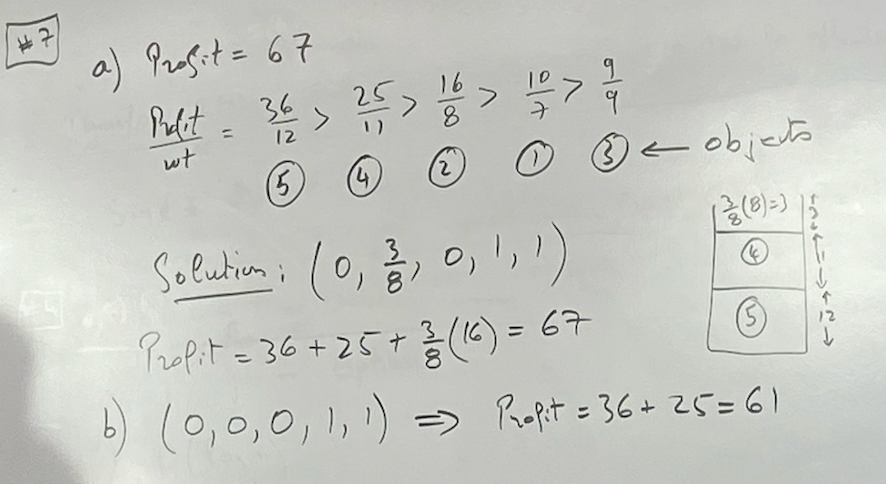 #7
a) Profit = 67
Profit/wt = 36/12 > 25/11 > 16/8 > 10/7 > 9/9
⑤ ④ ② ① ③ ← objects
3/8(8)=3 3
④ 11
⑤ 12
Solution: (0, 3/8, 0, 1, 1)
Profit = 36 + 25 + 3/8(16) = 67
b) (0, 0, 0, 1, 1) ⇒ Profit = 36 + 25 = 61